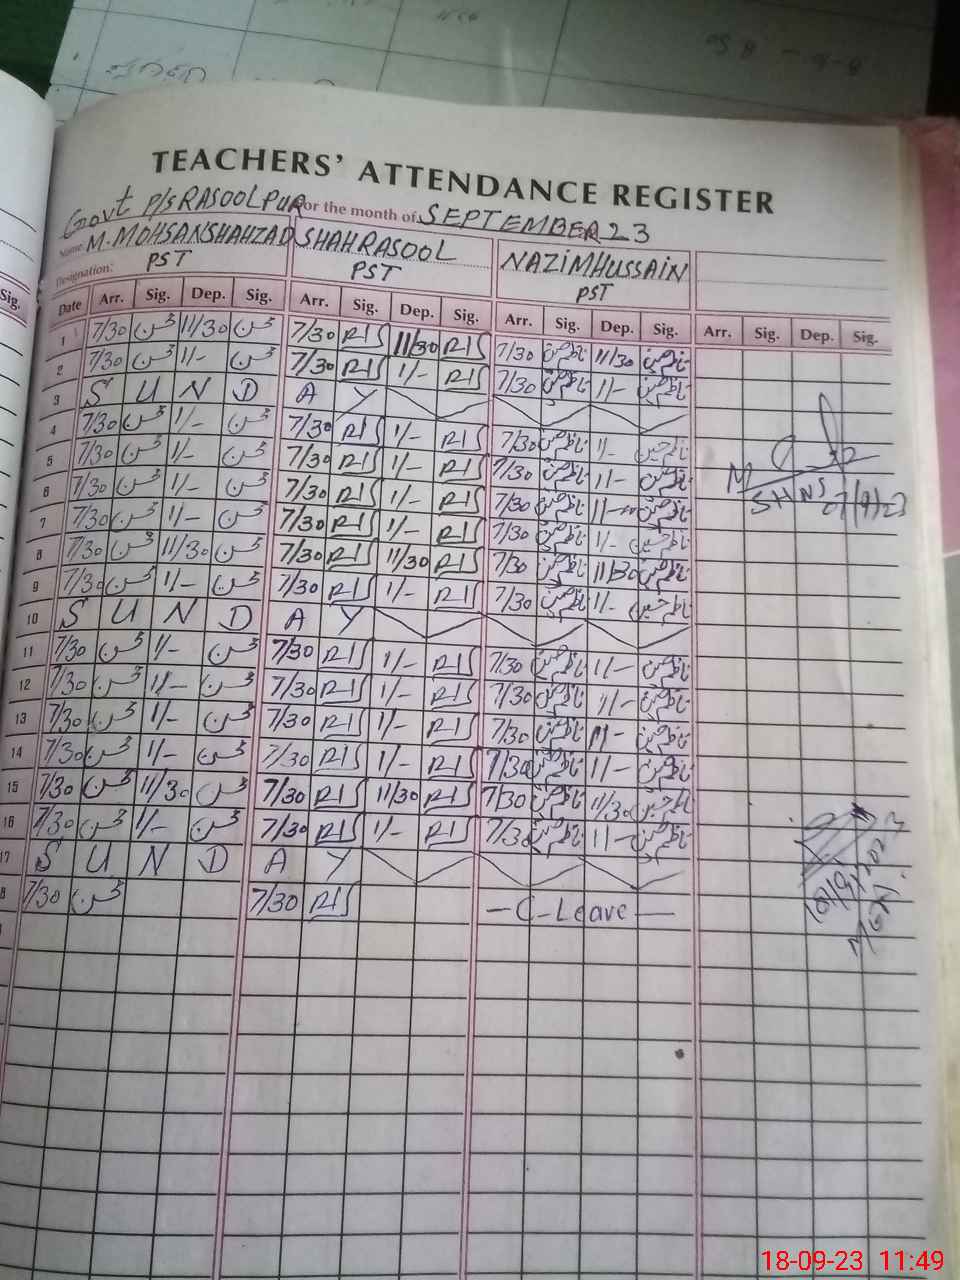 TEACHERS' ATTENDANCE REGISTER
Govt P/S RASOOLPUR For the month of SEPTEMBER 23
Name M. MOHSANSHAHZAD SHAHRASOOL NAZIMHUSSAIN
Designation: PST PST PST
Sig. Date Arr. Sig. Dep. Sig. Arr. Sig. Dep. Sig. Arr. Sig. Dep. Sig. Arr. Sig. Dep. Sig.
1 7/30 محسن 11/30 محسن 7/30 11/30 7/30 ناظم حسین 11/30 ناظم حسین
2 7/30 محسن 1/- محسن 7/30 1/- 7/30 ناظم حسین 1/- ناظم حسین
3 S U N D A Y
4 7/30 محسن 1/- محسن 7/30 1/- 7/30 ناظم حسین 1/- ناظم حسین
5 7/30 محسن 1/- محسن 7/30 1/- 7/30 ناظم حسین 1/- ناظم حسین
6 7/30 محسن 1/- محسن 7/30 1/- 7/30 ناظم حسین 1/- ناظم حسین
7 7/30 محسن 1/- محسن 7/30 1/- 7/30 ناظم حسین 1/- ناظم حسین
8 7/30 محسن 11/30 محسن 7/30 11/30 7/30 ناظم حسین 11/30 ناظم حسین
9 7/30 محسن 1/- محسن 7/30 1/- 7/30 ناظم حسین 1/- ناظم حسین
10 S U N D A Y
11 7/30 محسن 1/- محسن 7/30 1/- 7/30 ناظم حسین 1/- ناظم حسین
12 7/30 محسن 1/- محسن 7/30 1/- 7/30 ناظم حسین 1/- ناظم حسین
13 7/30 محسن 1/- محسن 7/30 1/- 7/30 ناظم حسین 1/- ناظم حسین
14 7/30 محسن 1/- محسن 7/30 1/- 7/30 ناظم حسین 1/- ناظم حسین
15 7/30 محسن 11/30 محسن 7/30 11/30 7/30 ناظم حسین 11/30 ناظم حسین
16 7/30 محسن 1/- محسن 7/30 1/- 7/30 ناظم حسین 1/- ناظم حسین
17 S U N D A Y
8 7/30 محسن 7/30 — C-Leave —
18-09-23 11:49